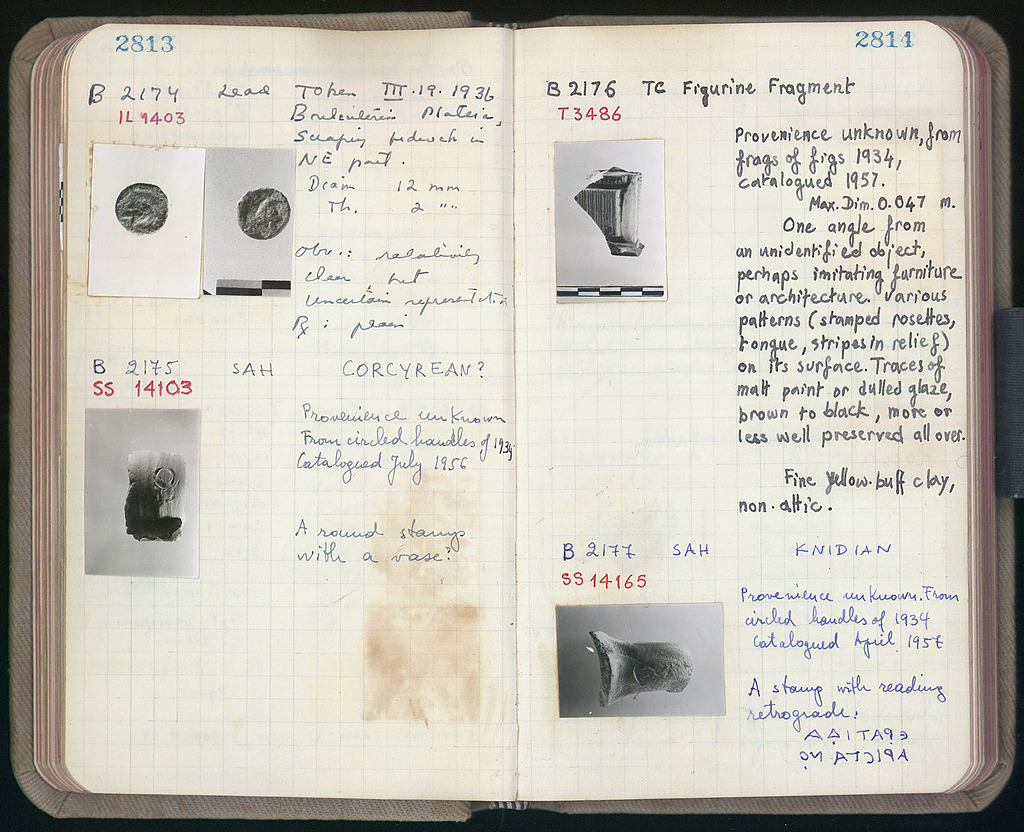 2813
B 2174 Lead Token III.19.1936
IL 1403
Bouleuterion Plateia,
Scraping bedrock in
NE part.
Diam 12 mm
Th. 2 ""
Obv.: relatively
clear but
uncertain representation
Rx: plain
B 2175 SAH CORCYREAN?
SS 14103
Provenience unknown
From circled handles of 1934
Catalogued July 1956
A round stamp
with a vase?
2814
B 2176 TC Figurine Fragment
T3486
Provenience unknown, from
frags of figs 1934,
catalogued 1957.
Max. Dim. 0.047 m.
One angle from
an unidentified object,
perhaps imitating furniture
or architecture. Various
patterns (stamped rosettes,
tongue, stripes in relief)
on its surface. Traces of
matt paint or dulled glaze,
brown to black, more or
less well preserved all over.
Fine yellow-buff clay,
non-attic.
B 2177 SAH KNIDIAN
SS 14165
Provenience unknown. From
circled handles of 1934
Catalogued April 1957
A stamp with reading
retrograde: